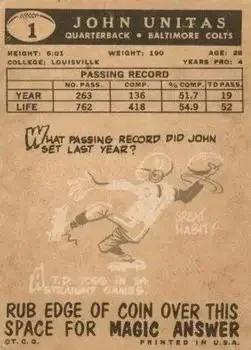 1
JOHN UNITAS
QUARTERBACK • BALTIMORE COLTS
HEIGHT: 6:01 WEIGHT: 190 AGE: 26
COLLEGE: LOUISVILLE YEARS PRO: 4
PASSING RECORD
NO. PASS. COMP. % COMP. TD PASS.
YEAR 263 136 51.7 19
LIFE 762 418 54.9 52
WHAT PASSING RECORD DID JOHN
SET LAST YEAR?
GREAT
HABIT!
T.D. TOSS IN 24
STRAIGHT GAMES.
RUB EDGE OF COIN OVER THIS
SPACE FOR MAGIC ANSWER
©T.C.G. PRINTED IN U.S.A.